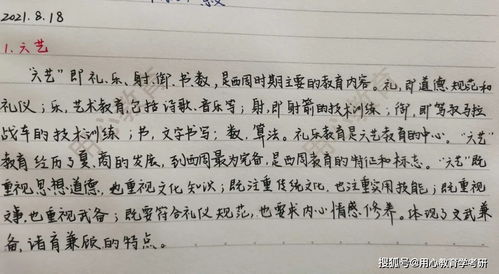 2021.8.18
1.六艺
“六艺”即礼、乐、射、御、书、数,是西周时期主要的教育内容。礼,即道德规范和
礼仪;乐,艺术教育,包括诗歌、音乐等;射,即射箭的技术训练;御,即驾驭马拉
战车的技术训练;书,文字书写;数,算法。礼乐教育是六艺教育的中心。“六艺”
教育经历了夏、商的发展,到西周最为完备,是西周教育的特征和标志。“六艺”既
重视思想道德,也重视文化知识;既注重传统文化,也注重实用技能;既重视
文事,也重视武备;既要符合礼仪规范,也要求内心情感修养。体现了文武兼
备,诸育兼顾的特点。
用心教育
用心教育
搜狐号@用心教育学考研